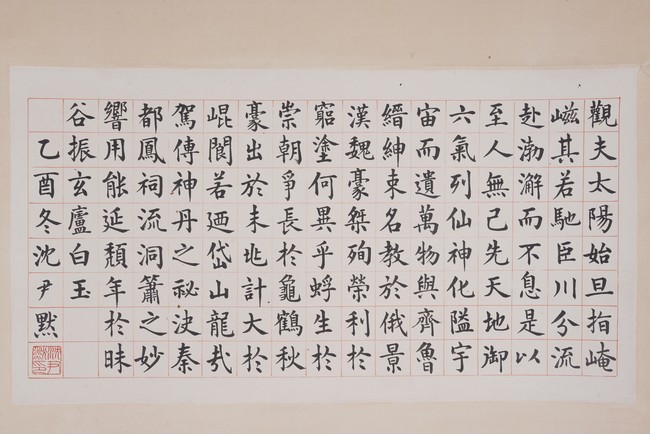 觀夫太陽始旦指崦
嵫其若馳臣川分流
赴渤澥而不息是以
至人無己先天地御
六氣列仙神化隘宇
宙而遺萬物與齊魯
縉紳束名教於俄景
漢魏豪桀殉榮利於
窮塗何異乎蜉生於
崇朝爭長於龜鶴秋
豪出於未兆計大於
崐閬若迺岱山龍
駕傳神丹之秘決秦
都鳳祠流洞簫之妙
響用能延頹年於昧
谷振玄廬白玉
乙酉冬沈尹默